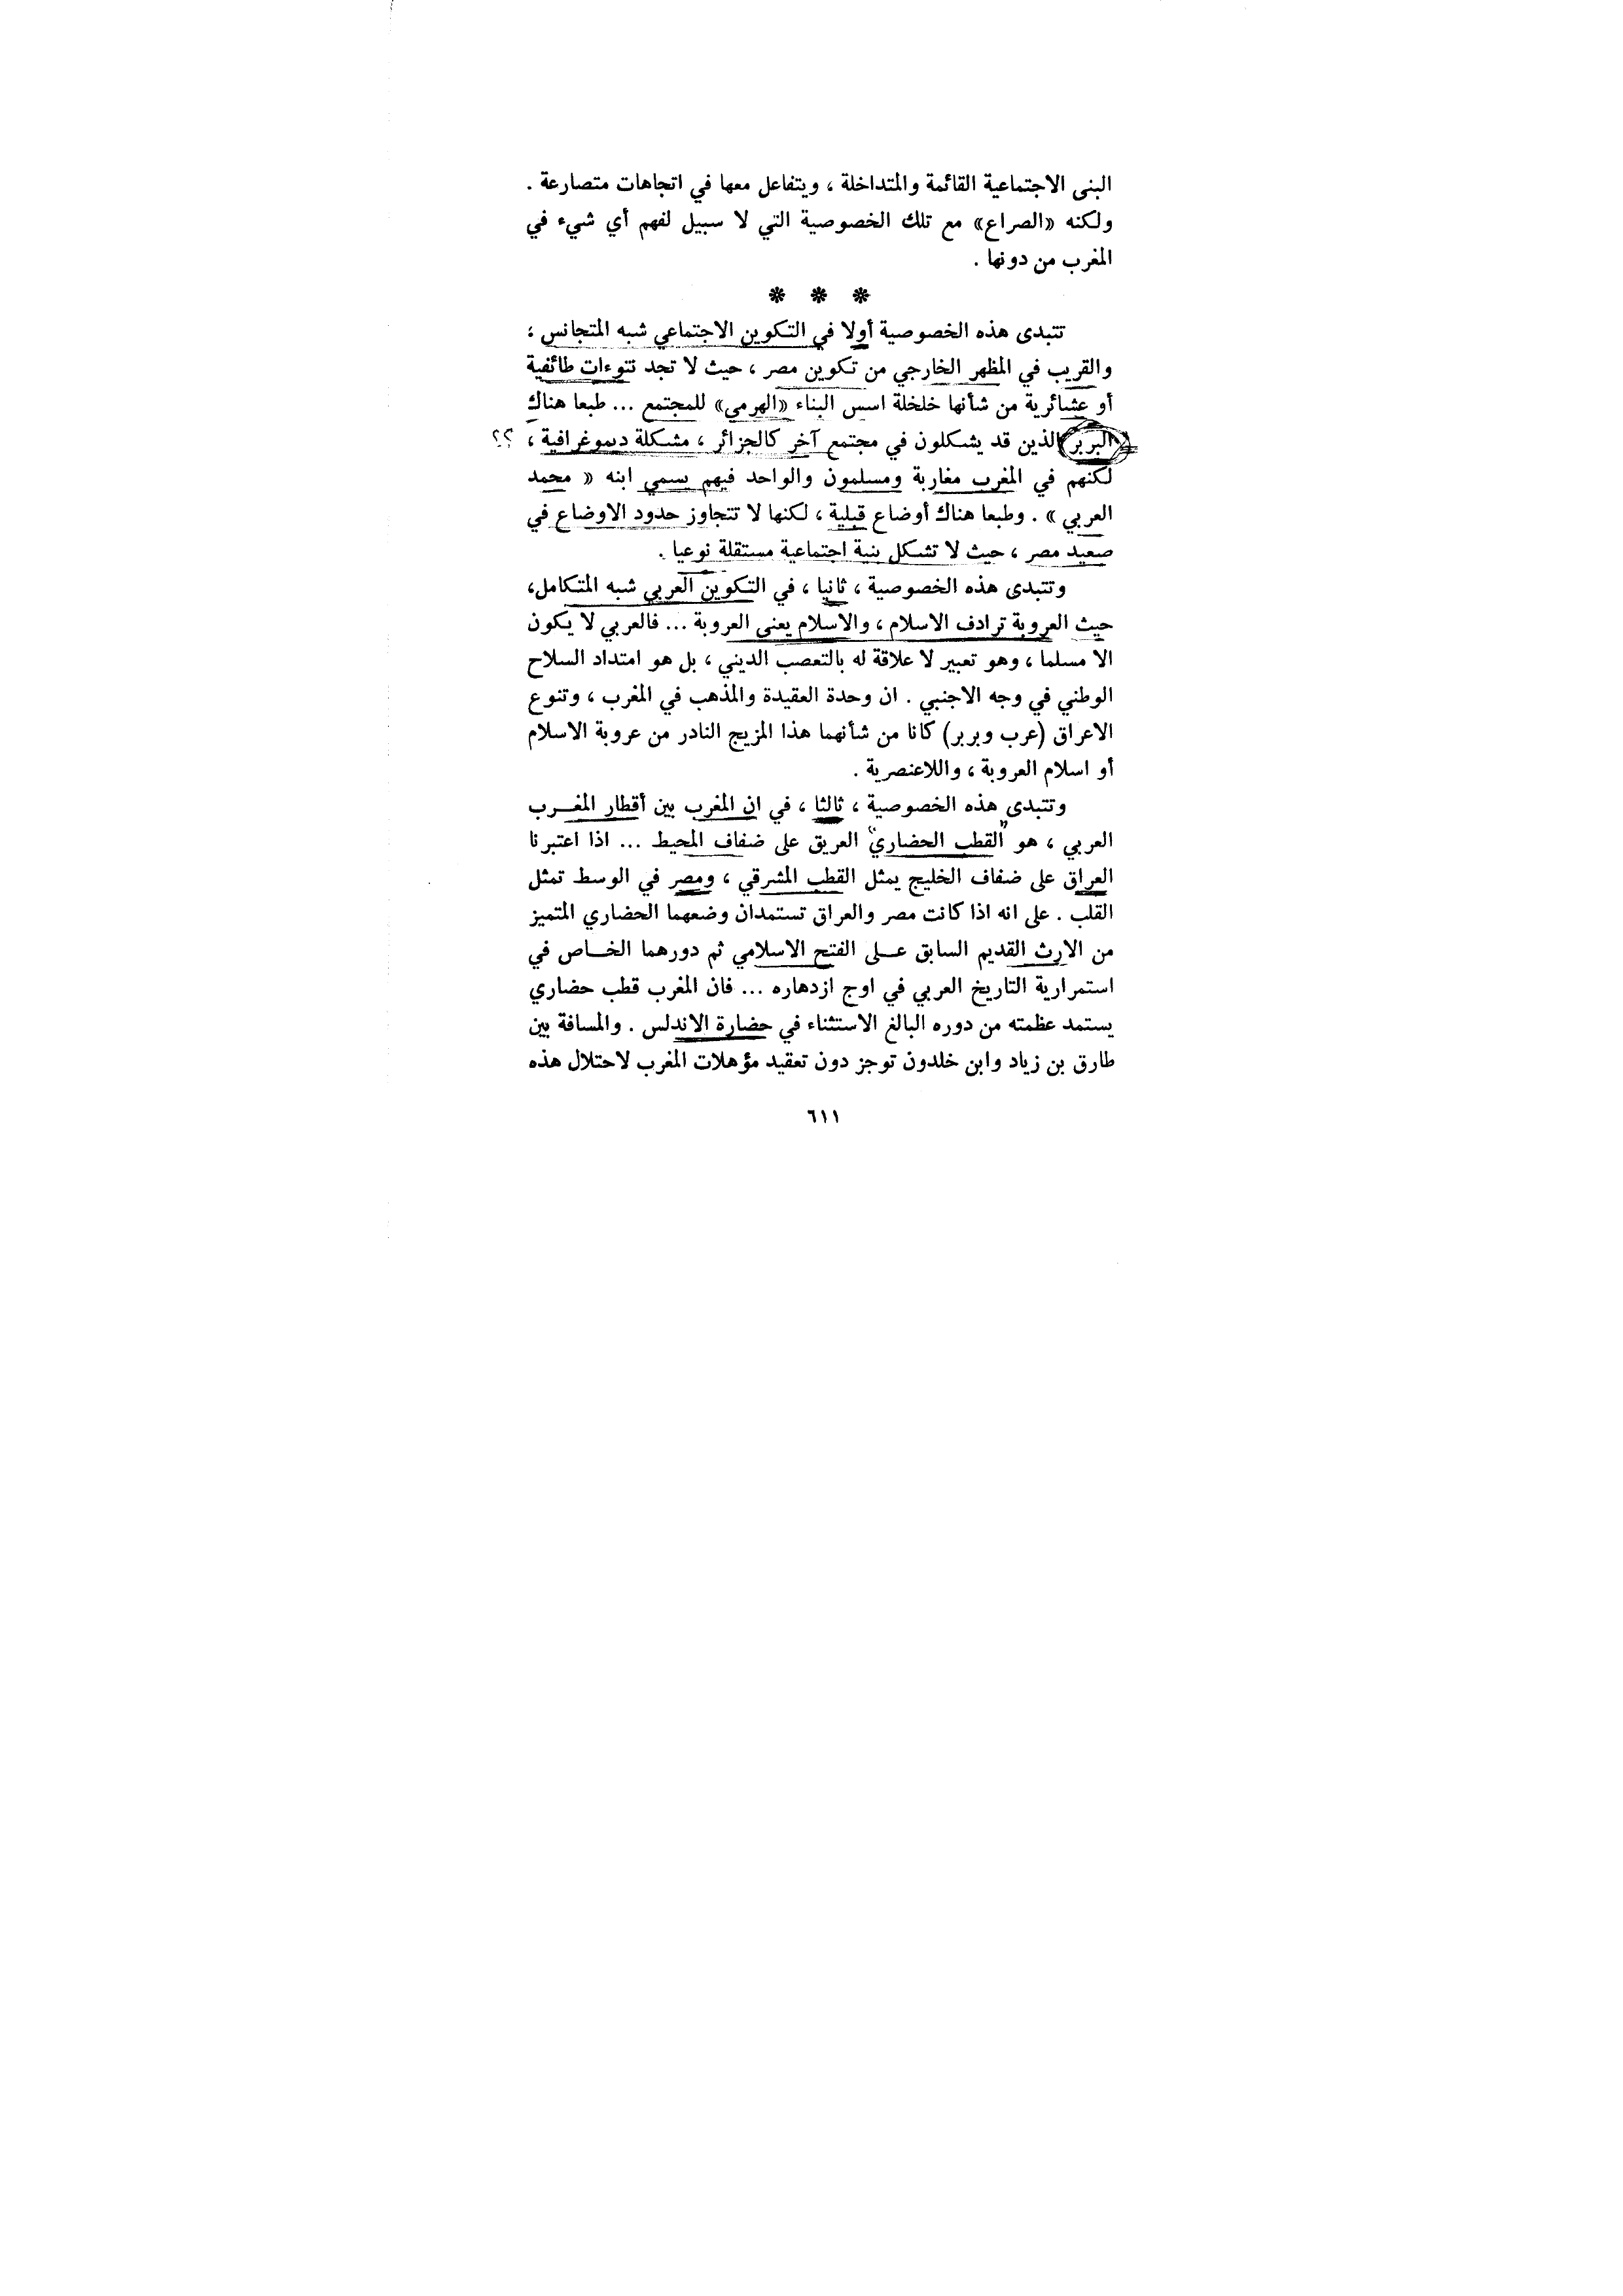 البنى الاجتماعية القائمة والمتداخلة ، ويتفاعل معها في اتجاهات متصارعة .
ولكنه «الصراع» مع تلك الخصوصية التي لا سبيل لفهم أي شيء في
المغرب من دونها .
* * *
تتبدى هذه الخصوصية أولا في التكوين الاجتماعي شبه المتجانس ؛
والقريب في المظهر الخارجي من تكوين مصر ، حيث لا تجد نتوءات طائفية
أو عشائرية من شأنها خلخلة اسس البناء «الهرمي» للمجتمع ... طبعا هناك
البربر الذين قد يشكلون في مجتمع آخر كالجزائر ، مشكلة ديموغرافية ، ؟؟
لكنهم في المغرب مغاربة ومسلمون والواحد فيهم يسمي ابنه « محمد
العربي » . وطبعا هناك أوضاع قبلية ، لكنها لا تتجاوز حدود الاوضاع في
صعيد مصر ، حيث لا تشكل بنية اجتماعية مستقلة نوعيا .
وتتبدى هذه الخصوصية ، ثانيا ، في التكوين العربي شبه المتكامل،
حيث العروبة ترادف الاسلام ، والاسلام يعني العروبة ... فالعربي لا يكون
الا مسلما ، وهو تعبير لا علاقة له بالتعصب الديني ، بل هو امتداد السلاح
الوطني في وجه الاجنبي . ان وحدة العقيدة والمذهب في المغرب ، وتنوع
الاعراق (عرب وبربر) كانا من شأنهما هذا المزيج النادر من عروبة الاسلام
أو اسلام العروبة ، واللاعنصرية .
وتتبدى هذه الخصوصية ، ثالثا ، في ان المغرب بين أقطار المغـرب
العربي ، هو "القطب الحضاري" العريق على ضفاف المحيط ... اذا اعتبرنا
العراق على ضفاف الخليج يمثل القطب المشرقي ، ومصر في الوسط تمثل
القلب . على انه اذا كانت مصر والعراق تستمدان وضعهما الحضاري المتميز
من الارث القديم السابق عـلى الفتح الاسلامي ثم دورهما الخـاص في
استمرارية التاريخ العربي في اوج ازدهاره ... فان المغرب قطب حضاري
يستمد عظمته من دوره البالغ الاستثناء في حضارة الاندلس . والمسافة بين
طارق بن زياد وابن خلدون توجز دون تعقيد مؤهلات المغرب لاحتلال هذه
٦١١